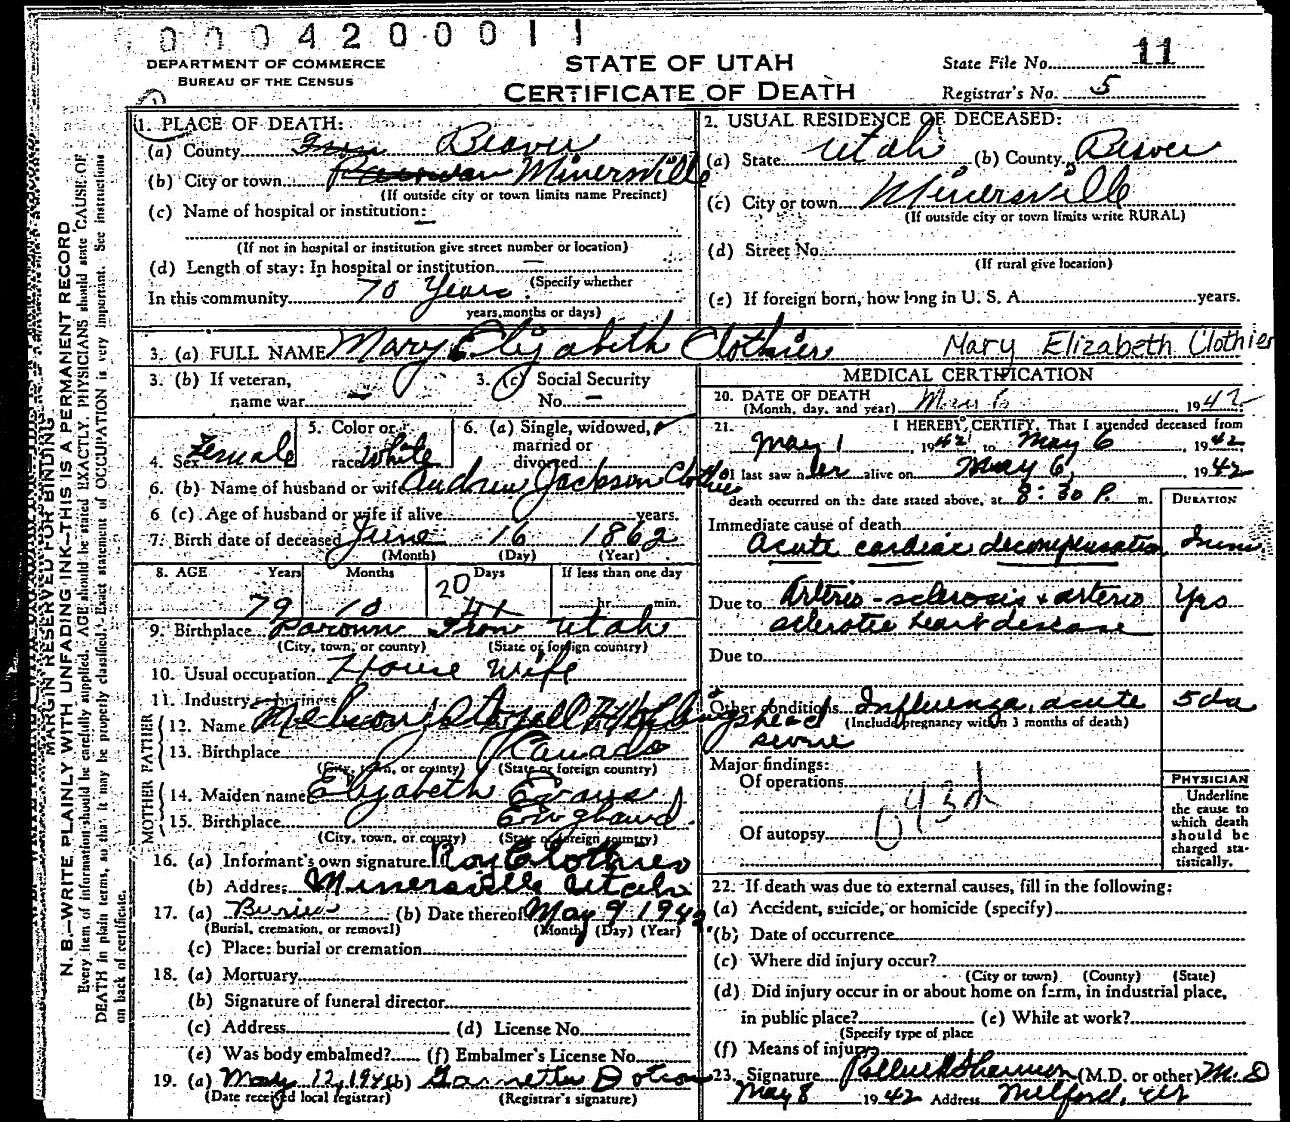 0 0 0 4 2 0 0 0 1 1
DEPARTMENT OF COMMERCE
BUREAU OF THE CENSUS
STATE OF UTAH
CERTIFICATE OF DEATH
State File No. 11
Registrar's No. 5
1. PLACE OF DEATH:
(a) County Iron Beaver
(b) City or town Minersville
(If outside city or town limits name Precinct)
(c) Name of hospital or institution: –
(If not in hospital or institution give street number or location)
(d) Length of stay: In hospital or institution –
(Specify whether
In this community 70 Years
years, months or days)
2. USUAL RESIDENCE OF DECEASED:
(a) State Utah (b) County Beaver
(c) City or town Minersville
(If outside city or town limits write RURAL)
(d) Street No.
(If rural give location)
(e) If foreign born, how long in U. S. A. years.
3. (a) FULL NAME Mary Elizabeth Clothier Mary Elizabeth Clothier
3. (b) If veteran, name war –
3. (c) Social Security No. –
4. Sex Female
5. Color or race White
6. (a) Single, widowed, married or divorced
6. (b) Name of husband or wife Andrew Jackson Clothier
6 (c). Age of husband or wife if alive years.
7. Birth date of deceased June 16 1862
(Month) (Day) (Year)
8. AGE Years Months Days If less than one day
20
79 10 hr. min.
9. Birthplace Parowan Iron Utah
(City, town, or county) (State or foreign country)
10. Usual occupation House Wife
11. Industry or business
FATHER
12. Name Hollingshead
13. Birthplace Canada
(City, town, or county) (State or foreign country)
MOTHER
14. Maiden name Elizabeth Evans
15. Birthplace England
(City, town, or county) (State or foreign country)
16. (a) Informant's own signature Roy Clothier
(b) Address Minersville Utah
17. (a) Burial (b) Date thereof May 9 1942
(Burial, cremation, or removal) (Month) (Day) (Year)
(c) Place: burial or cremation
18. (a) Mortuary
(b) Signature of funeral director
(c) Address (d) License No.
(e) Was body embalmed? (f) Embalmer's License No.
19. (a) May 12, 194 (b) Dotson
(Date received local registrar) (Registrar's signature)
MEDICAL CERTIFICATION
20. DATE OF DEATH
(Month, day, and year) May 6 1942
21. I HEREBY CERTIFY, That I attended deceased from
May 1, 1942 to May 6, 1942
I last saw her alive on May 6, 1942
death occurred on the date stated above, at 8:30 P. m.
DURATION
Immediate cause of death
Acute cardiac decompensation
Due to Arterio-sclerosis & arterio Yrs
sclerotic heart disease
Due to
Other conditions Influenza, acute 5 da
(Include pregnancy within 3 months of death)
severe
Major findings:
Of operations
093d
Of autopsy
PHYSICIAN
Underline
the cause to
which death
should be
charged sta-
tistically.
22. If death was due to external causes, fill in the following:
(a) Accident, suicide, or homicide (specify)
(b) Date of occurrence
(c) Where did injury occur?
(City or town) (County) (State)
(d) Did injury occur in or about home on farm, in industrial place,
in public place? (e) While at work?
(Specify type of place
(f) Means of injury
23. Signature (M.D. or other) M.D
May 8 1942 Address Milford, Ut
MARGIN RESERVED FOR BINDING
N. B.—WRITE PLAINLY WITH UNFADING INK—THIS IS A PERMANENT RECORD
Every item of information should be carefully supplied. AGE should be stated EXACTLY. PHYSICIANS should state CAUSE OF
DEATH in plain terms, so that it may be properly classified. Exact statement of OCCUPATION is very important. See instructions
on back of certificate.